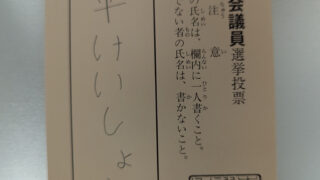 会議員選挙投票
注意
の氏名は、欄内に一人書くこと。
でない者の氏名は、書かないこと。
平けいしょ